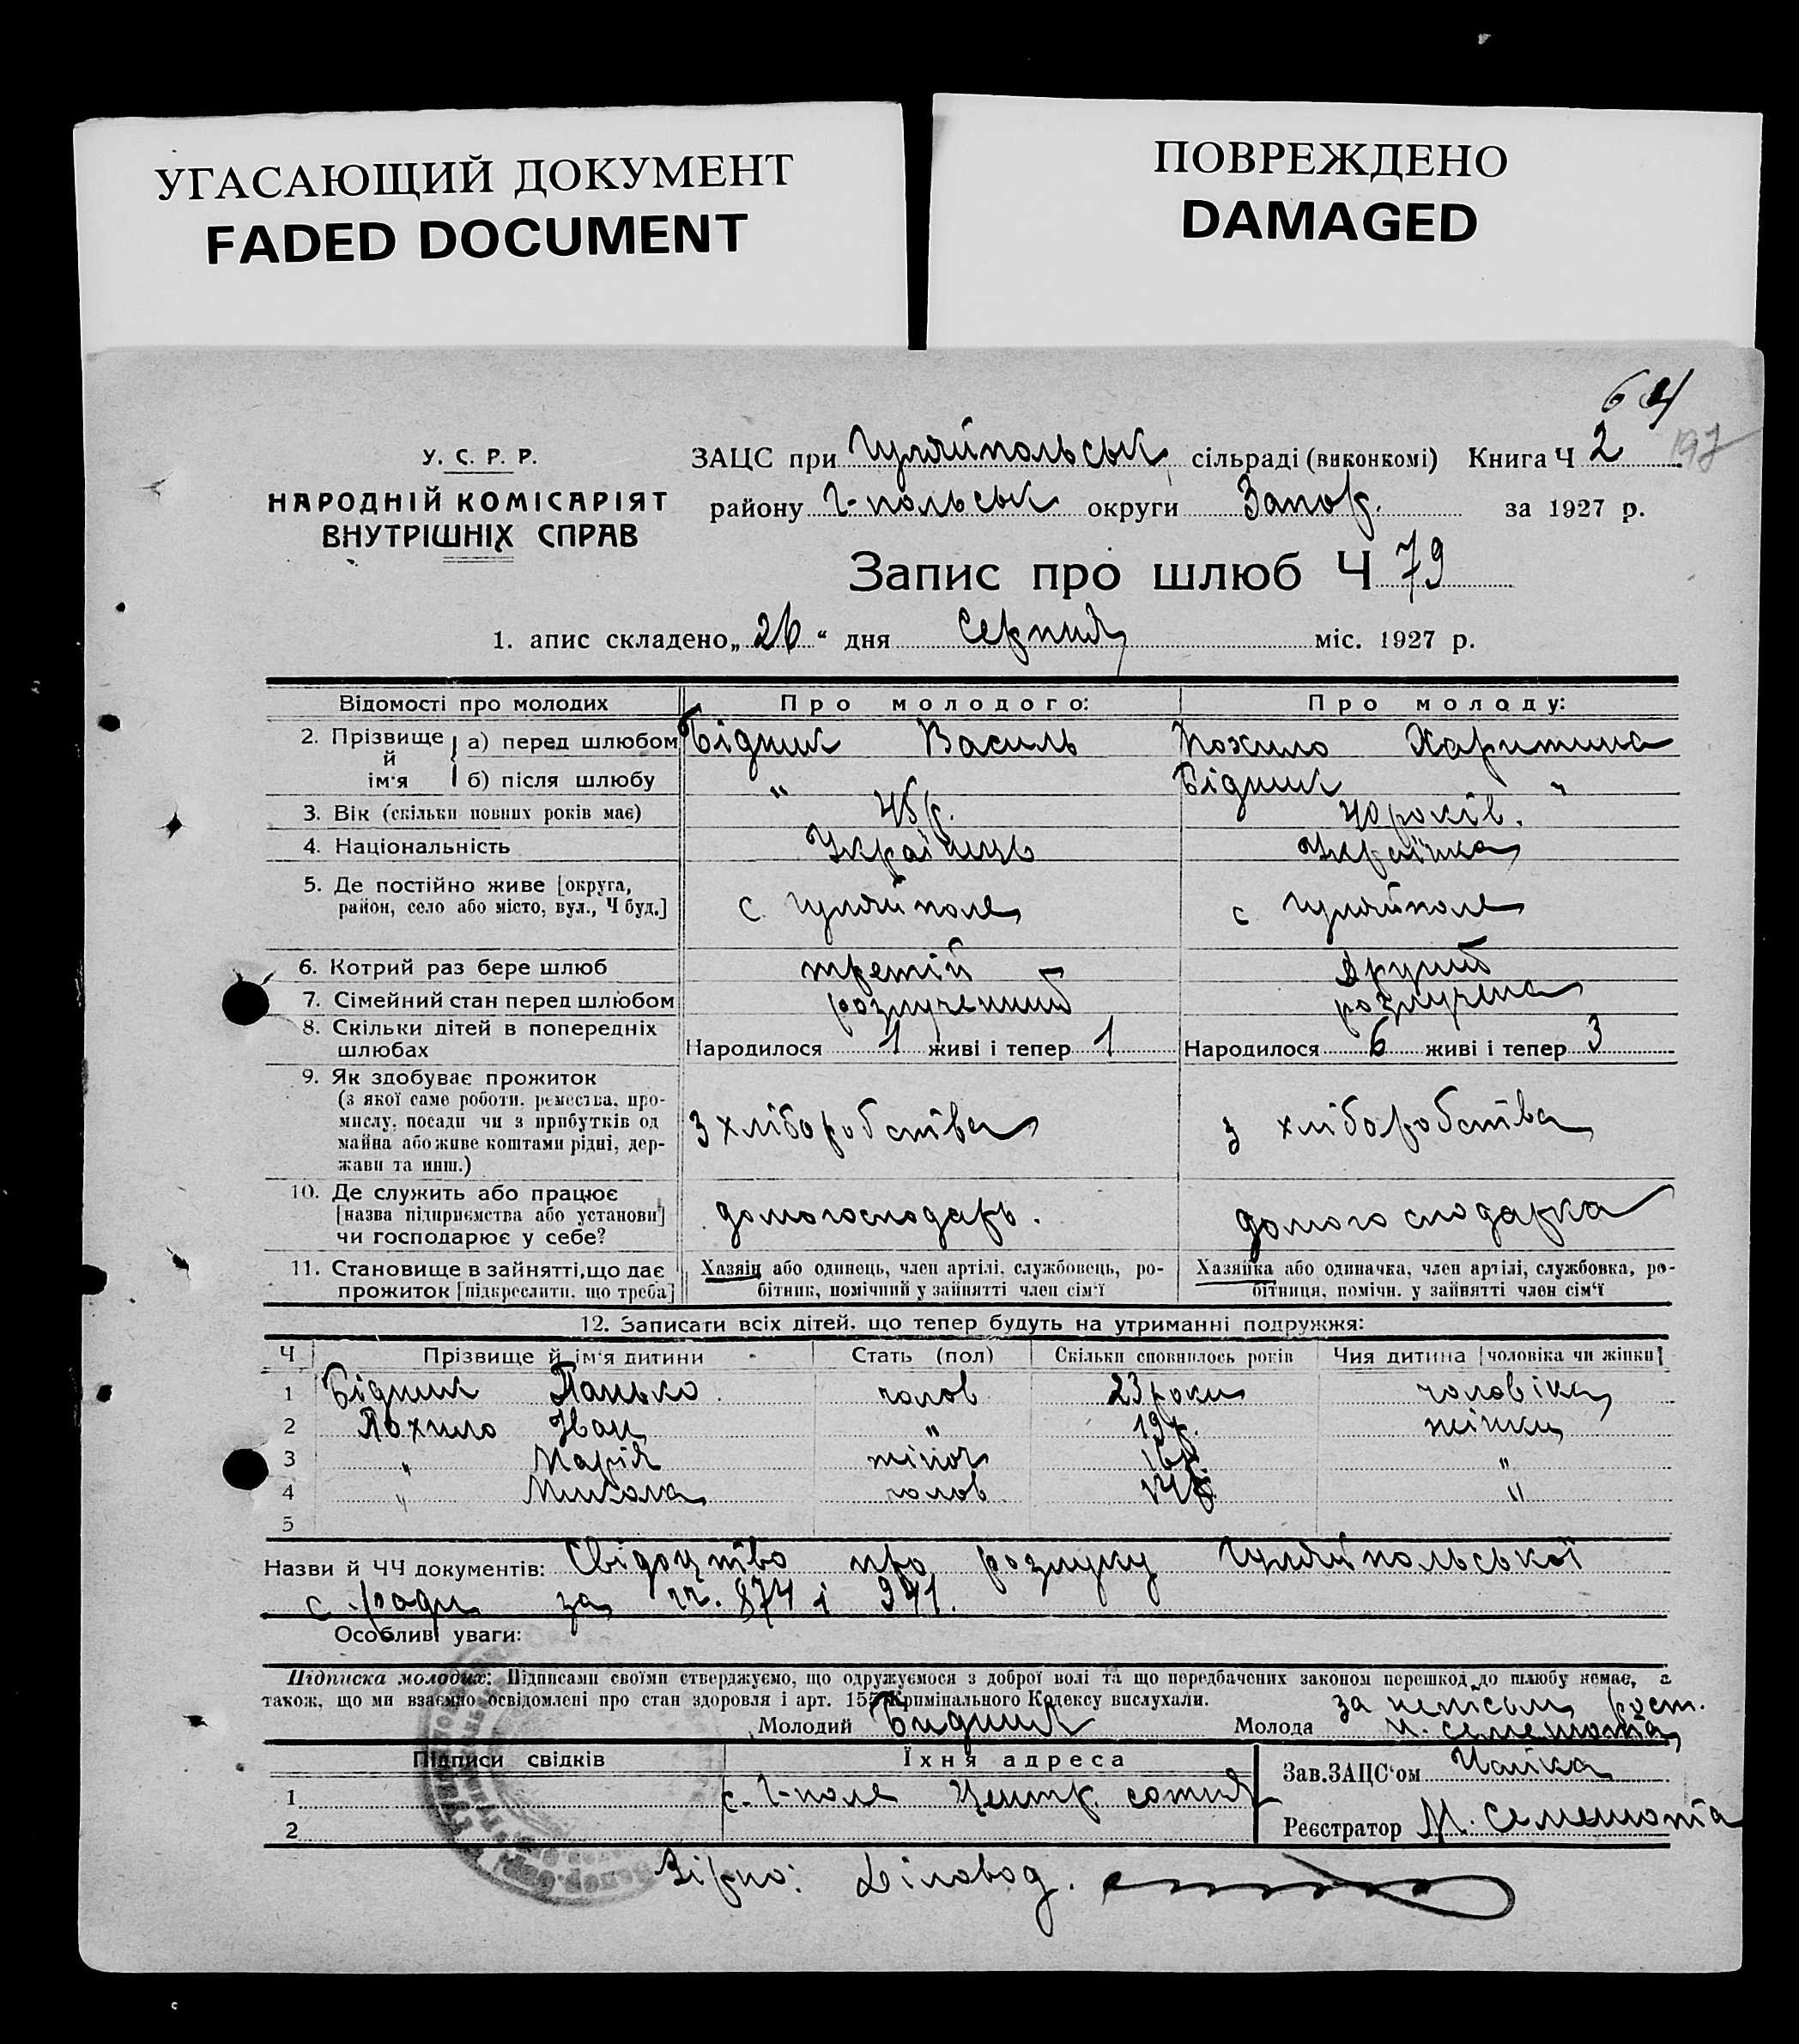 УГАСАЮЩИЙ ДОКУМЕНТ
FADED DOCUMENT
ПОВРЕЖДЕНО
DAMAGED
64
197
У. С. Р. Р.
НАРОДНІЙ КОМІСАРІЯТ
ВНУТРІШНІХ СПРАВ
ЗАЦС при Гуляйпольськ сільраді (виконкомі) Книга Ч 2
району Г-польськ округи Запор. за 1927 р.
Запис про шлюб Ч 79
1. апис складено „26“ дня Серпня міс. 1927 р.
Відомості про молодих Про молодого: Про молоду:
2. Прізвище й ім'я а) перед шлюбом Бідник Василь Похило Харитина
б) після шлюбу " Бідник "
3. Вік (скільки повних років має) 45 р. 40 років.
4. Національність Українець Українка
5. Де постійно живе [округа, район, село або місто, вул., Ч буд.] с Гуляйполе с Гуляйполе
6. Котрий раз бере шлюб третій другий
7. Сімейний стан перед шлюбом розлученний розлучена
8. Скільки дітей в попередніх шлюбах Народилося 1 живі і тепер 1 Народилося 6 живі і тепер 3
9. Як здобуває прожиток
(з якої саме роботи. ремества. про-
мислу. посади чи з прибутків од
майна або живе коштами рідні, дер-
жави та инш.) З хліборобства з хліборобства
10. Де служить або працює
[назва підприємства або установи]
чи господарює у себе? домогосподарь. домогосподарка
11. Становище в зайнятті, що дає
прожиток [підкреслити. що треба]
Хазяїн або одинець, член артілі, службовець, ро-
бітник, помічний у зайнятті член сім'ї
Хазяїнка або одиначка, член артілі, службовка, ро-
бітниця, помічн. у зайнятті член сім'ї
12. Записати всіх дітей, що тепер будуть на утриманні подружжя:
Ч Прізвище й ім'я дитини Стать (пол) Скільки сповнилось років Чия дитина [чоловіка чи жінки]
1 Бідник Панько чолов 23 роки чоловіка
2 Похило Іван " 19 р. жінки
3 " Марія жіноч 16 р. "
4 " Микола чолов 14 р. "
5
Назви й ЧЧ документів: Свідоцтво про розлуку Гуляйпольської
с ради за чч. 874 і 941.
Особливі уваги:
Підписка молодих: Підписами своїми стверджуємо, що одружуємося з доброї волі та що передбачених законом перешкод до шлюбу немає, а
також, що ми взаємно освідомлені про стан здоровля і арт. 155 Кримінального Кодексу вислухали.
Молодий Бидник Молода за неписьм. рост.
Підписи свідків Їхня адреса
1 с. Г-поле Центр. сотня
2
Зав. ЗАЦС'ом
Реєстратор М. Семенюта
Вірно: Діловод.